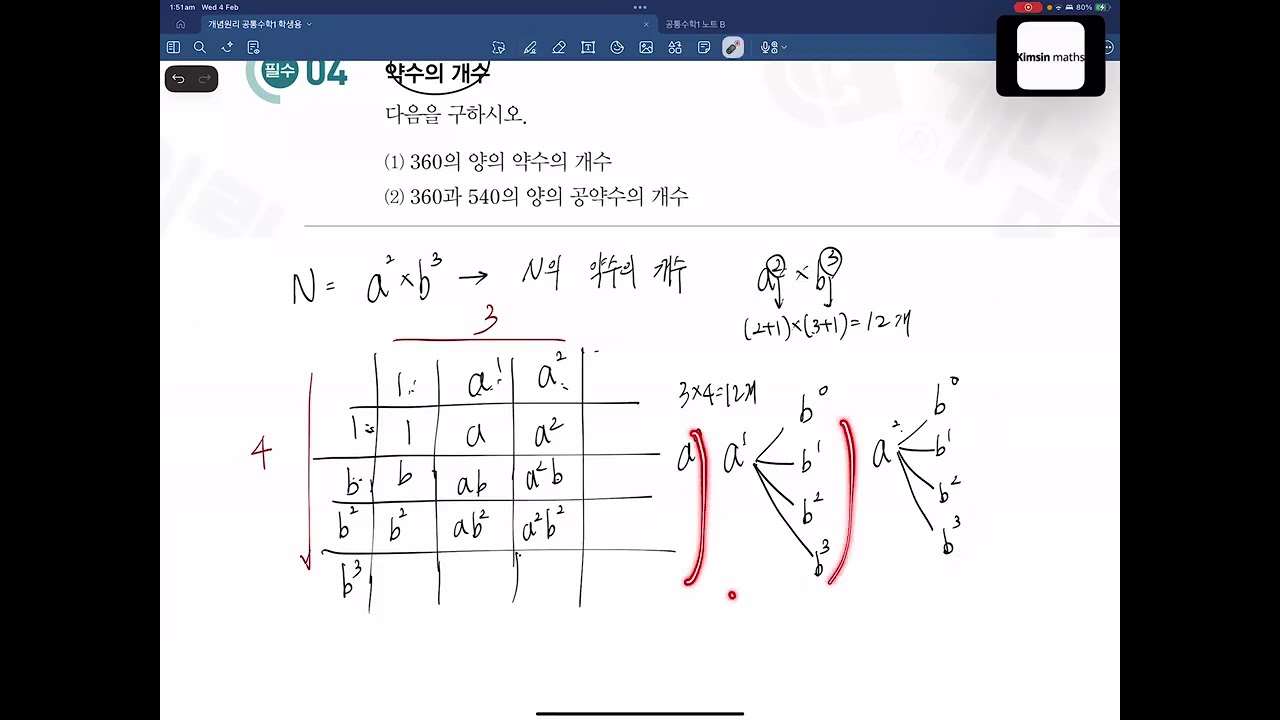 1:51 am Wed 4 Feb
80%
개념원리 공통수학1 학생용
공통수학1 노트 B
Kimsin maths
필수 04 약수의 개수
다음을 구하시오.
(1) 360의 양의 약수의 개수
(2) 360과 540의 양의 공약수의 개수
N = a² × b³ → N의 약수의 개수
a² × b³
(2+1)×(3+1)=12개
3
1 a¹ a²
3×4=12개
4
1 1 a a²
b b ab a²b
b² b² ab² a²b²
b³
a
a¹ b⁰ b¹ b² b³
a² b⁰ b¹ b² b³